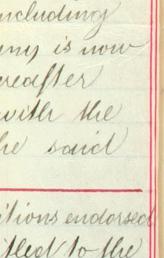 including
any is now
ereafter
with the
he said
itions endorsed
itled to the